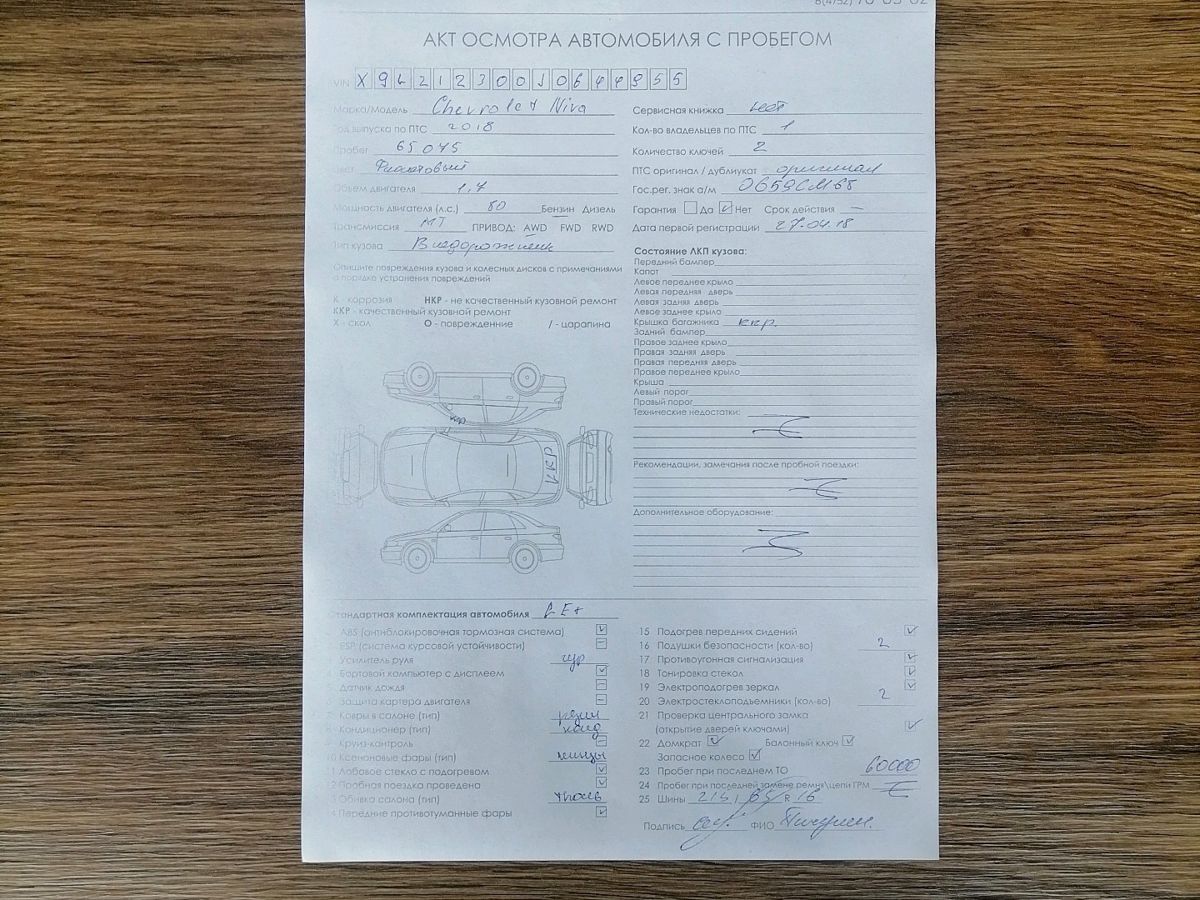 8(4752)
АКТ ОСМОТРА АВТОМОБИЛЯ С ПРОБЕГОМ
VIN X9L212300J0644955
Марка/Модель Chevrolet Niva
Год выпуска по ПТС 2018
Пробег 65045
Цвет
Объем двигателя 1,7
Мощность двигателя (л.с.) 80 Бензин Дизель
Трансмиссия МТ ПРИВОД: AWD FWD RWD
Тип кузова Внедорожник
Опишите повреждения кузова и колесных дисков с примечаниями
о порядке устранения повреждений
К - коррозия НКР - не качественный кузовной ремонт
ККР - качественный кузовной ремонт
Х - скол О - повреждение / - царапина
ккр
Сервисная книжка нет
Кол-во владельцев по ПТС 1
Количество ключей 2
ПТС оригинал / дубликат оригинал
Гос.рег. знак а/м О659СМ68
Гарантия Да Нет Срок действия —
Дата первой регистрации 27.04.18
Состояние ЛКП кузова:
Передний бампер
Капот
Левое переднее крыло
Левая передняя дверь
Левая задняя дверь
Левое заднее крыло
Крышка багажника ккр.
Задний бампер
Правое заднее крыло
Правая задняя дверь
Правая передняя дверь
Правое переднее крыло
Крыша
Левый порог
Правый порог
Технические недостатки:
Рекомендации, замечания после пробной поездки:
Дополнительное оборудование:
Стандартная комплектация автомобиля
ABS (антиблокировочная тормозная система)
ESP (система курсовой устойчивости)
Усилитель руля гур
4 Бортовой компьютер с дисплеем
5 Датчик дождя
6 Защита картера двигателя
7 Ковры в салоне (тип) резин
8 Кондиционер (тип) конд
Круиз-контроль
10 Ксеноновые фары (тип) линзы
11 Лобовое стекло с подогревом
12 Пробная поездка проведена
13 Обивка салона (тип)
14 Передние противотуманные фары
15 Подогрев передних сидений
16 Подушки безопасности (кол-во) 2
17 Противоугонная сигнализация
18 Тонировка стекол
19 Электроподогрев зеркал
20 Электростеклоподъемники (кол-во) 2
21 Проверка центрального замка
(открытие дверей ключами)
22 Домкрат Балонный ключ
Запасное колесо
23 Пробег при последнем ТО 60000
24 Пробег при последней замене ремня\цепи ГРМ
25 Шины 215 / 65 R 16
Подпись ФИО